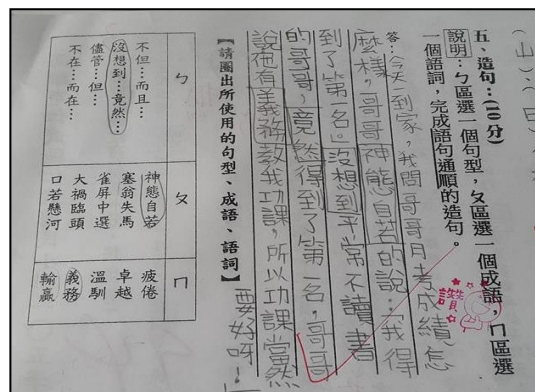 五、造句：（10分）
說明：ㄅ區選一個句型，ㄆ區選一個成語，ㄇ區選
一個語詞，完成語句通順的造句。
答：今天一到家，我問哥哥月考成績怎
麼樣，哥哥神態自若的說：「我得
到了第一名。」沒想到平常不讀書
的哥哥，竟然得到了第一名，哥哥
說他有義務教我功課，所以功課當然
要好呀！
【請圈出所使用的句型、成語、語詞】
ㄅ
不但…而且…
沒想到…竟然…
儘管…但…
不在…而在…
ㄆ
神態自若
塞翁失馬
雀屏中選
大禍臨頭
口若懸河
ㄇ
疲倦
卓越
溫馴
義務
輸贏